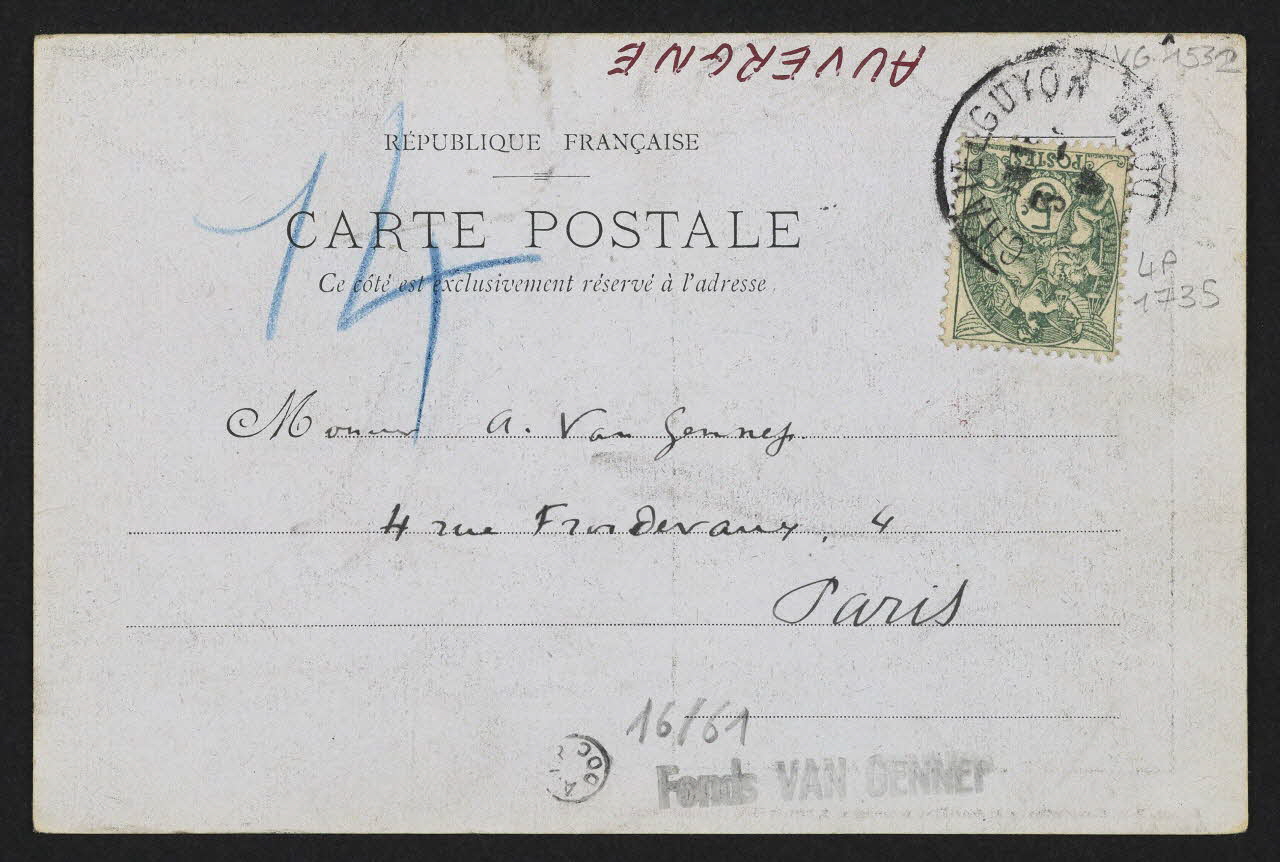 AUVERGNE
VG 1532
RÉPUBLIQUE FRANÇAISE
CARTE POSTALE
Ce côté est exclusivement réservé à l'adresse
14
CHATEL-GUYON
DOME
POSTES
5
4P
1735
Monsieur A. Van Gennep.
4 rue Froidevaux, 4
Paris
16/61
Fonds VAN GENNEP